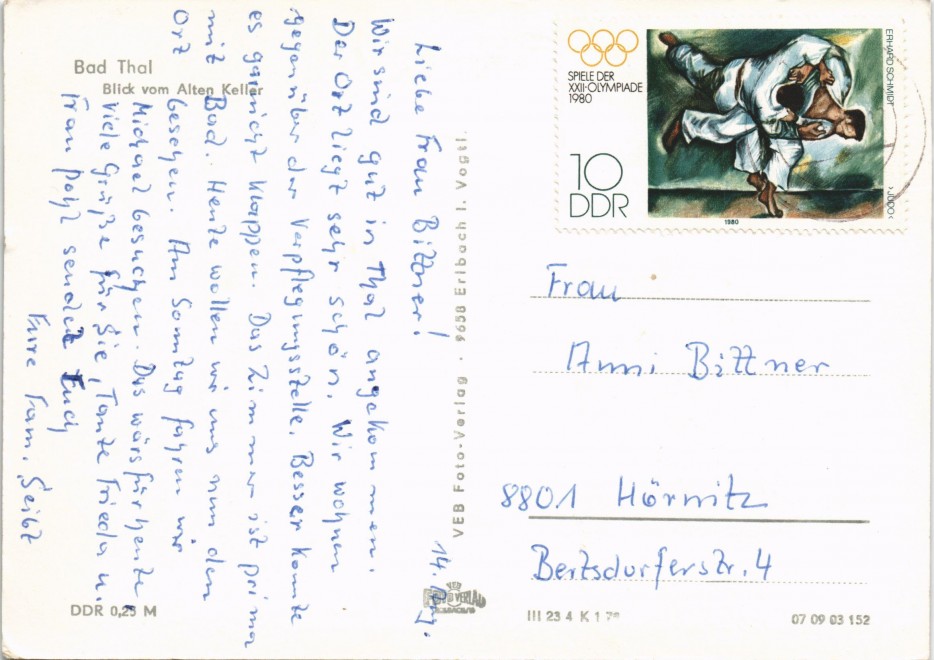 Bad Thal
Blick vom Alten Keller
14. Aug.
Liebe Frau Bittner!
Wir sind gut in Thal angekommen.
Der Ort liegt sehr schön. Wir wohnen
gegenüber der Verpflegungsstelle. Besser konnte
es garnicht klappen. Das Zimmer ist prima
mit Bad. Heute wollen wir uns nun den
Ort besehen. Am Sonntag fahren wir
Michael besuchen. Das wärs für heute
Viele Grüße für Sie, Tante Frieda u.
Frau Pohl sendet Euch
Eure Fam. Seibt
DDR 0,25 M
VEB Foto-Verlag · 9658 Erlbach I. Vogtl.
SPIELE DER
XXII·OLYMPIADE
1980
10
DDR
ERHARD SCHMIDT
›JUDO‹
1980
Frau
Anni Bittner
8801 Hörnitz
Bertsdorferstr. 4
VEB
FOTO VERLAG
ERLBACH
III 23 4 K 1
07 09 03 152